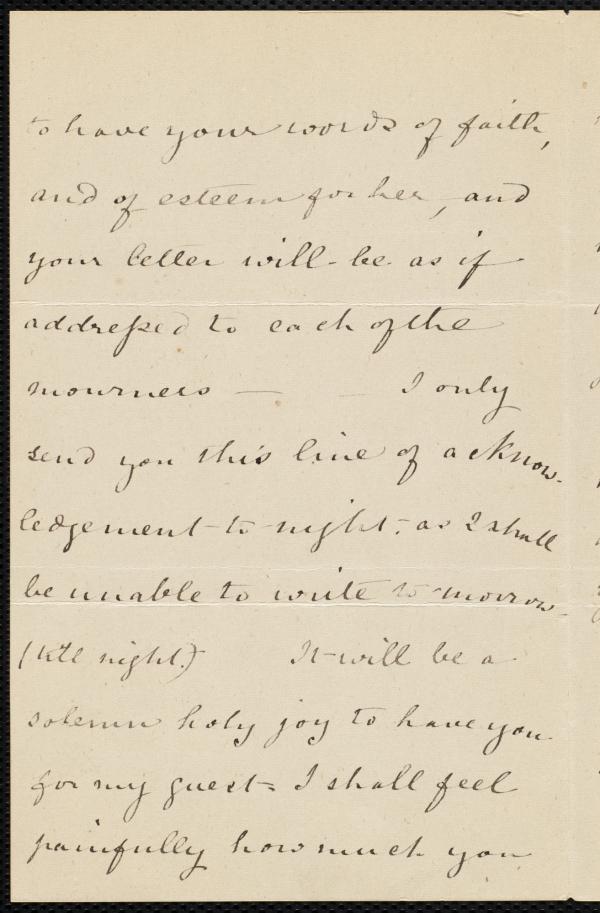 to have your words of faith,
and of esteem for her, and
your letter will be as if
addressed to each of the
mourners — — I only
send you this line of acknow-
ledgement to-night - as I shall
be unable to write to-morrow -
(till night.) It will be a
solemn holy joy to have you
for my guest - I shall feel
painfully how much you